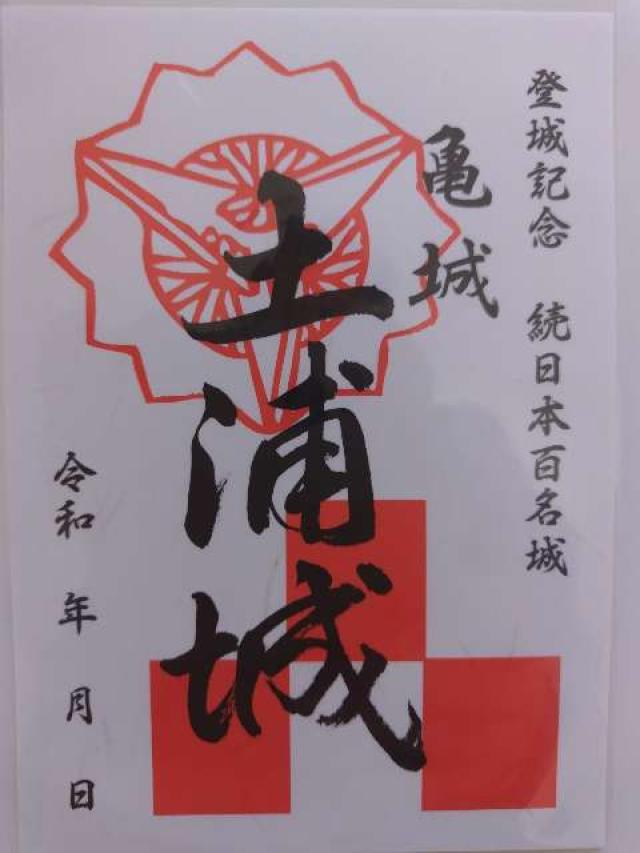 登城記念 続日本百名城
亀城
土浦城
令和 年 月 日